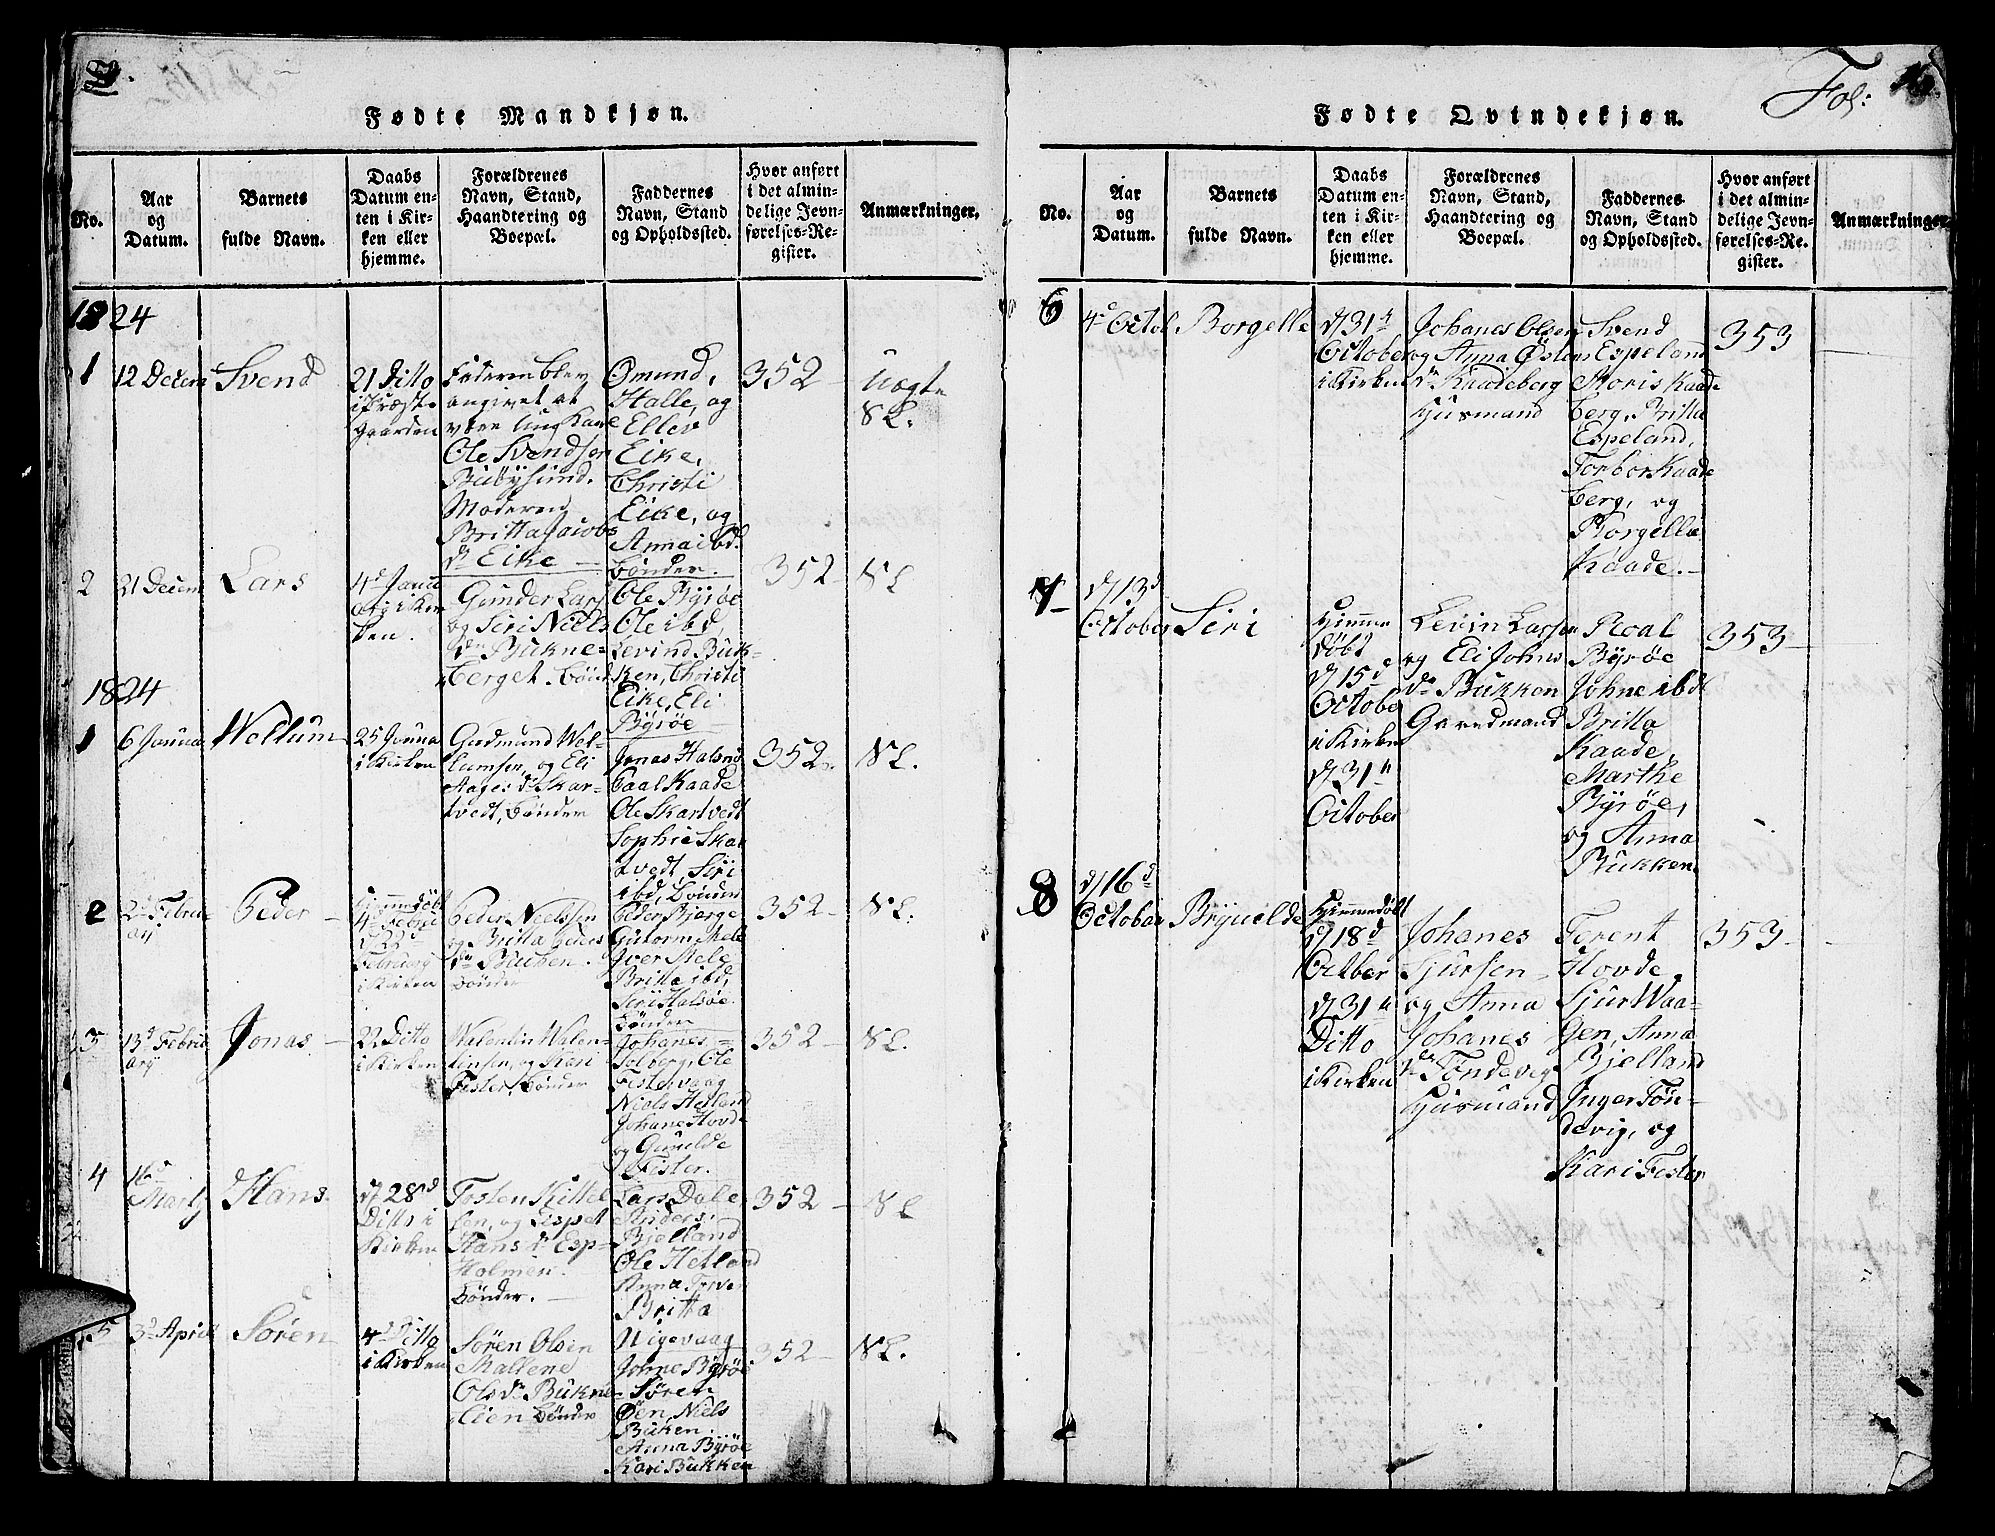 Fødte Mandkjøn.
No.
Aar
og
Datum.
Barnets
fulde Navn.
Daabs
Datum en-
ten i Kir-
ken eller
hjemme.
Forældrenes
Navn, Stand,
Haandtering og
Boepæl.
Faddernes
Navn, Stand
og Opholdssted.
Hvor anført
i det almin-
delige Jevn-
førelses-Re-
gister.
Anmærkninger.
1824
1
12 Decem
Svend
21 Ditto
i Præste
Gaarden
Faderen blev
angivet at
være Ung Karl
Ole Svendsen
Buøysund.
Moderen
Britta Jacobs
dr Eike
Omund
Halle, og
Ellev
Eike,
Christi
Eike, og
Anna ibd.
Bønder.
352
Uægte
NL.
2
21 Decem
Lars
4d Janu
ary i Kir
ken.
Gunder Lars
og Siri Niels
dr Bukne-
berget. Bønd
Ole Byrøe
Ole ibd,
Levind Buk-
ken, Christi
Eike, Eli
Byrøe
352
NL
1824
1
6 Janua
Wellum
25 Janua
i Kirken
Gudmund Wel-
lumsen, og Eli
Aages dr Skar-
tvedt, Bønder
Jonas Halsnø
Paal Kaade
Ole Skartvedt
Sophie Skar
tvedt, Siri
ibd, Bønder
352
NL.
2
2d Febru
ary
Peder
Hjemmedöbt
4d Febru
d 22d
Februarij
i Kirken
Peder Nielssen
og Britta Peders
dr Bukken.
Bønder
Peder Bjerge
Gutorm Mele
Iver Mele
Britta ibd,
Siri Halsøe.
Bønder
352
NL.
3
13d Febru
ary
Jonas
22 Ditto
i Kirken
Walentin Walen-
tinsen, og Kari
Fister, Bønder
Johanes
Solberg, Ole
Fistervaag
Niels Hetland
Johane Hovde
og Gunilde
Fister.
352
NL.
4
16d
Martz
Hans
d 28d
Ditto i
Kirken
Tosten Kittel
sen, og Lispet
Hans dr Esp-
Holmen.
Bønder.
Lars Dale
Anders
Bjelland
Ole Hetland
Anna
Britta
352
NL
5
3d April
Sören
4d Ditto
i Kirken
Sören Olsen
Mallene
Ols dr Bukne-
Bønder
Wigevaag
Johne Byrøe
Søren
Øen, Niels
Buken
Anna Byrøe
Kari Bukken
352
NL.
Fol:
Fødte Qvindekjøn.
No.
Aar
og
Datum.
Barnets
fulde Navn.
Daabs
Datum en-
ten i Kir-
ken eller
hjemme.
Forældrenes
Navn, Stand,
Haandtering og
Boepæl.
Faddernes
Navn, Stand
og Opholdssted.
Hvor anført
i det almin-
delige Jevn-
førelses-Re-
gister.
Anmærkninger.
6
4d Octob
Borgelle
d 31d
October
i Kirken
Johanes Olsen
og Anna Østens
dr Kaadeberg
Huusmand
Svend
Espeland
Moris Kaade
berg, Britta
Espeland,
Torbor Kaade
berg, og
Borgella
Kaade.
353
7
d 13d
October
Siri
Hjemme
døbt
d 15d
October
i Kirken
d 31d
October
Levin Larsen
og Eli Johns
dr Bukken
Gaardmand
Roal
Byrøe
Johne ibd
Britta
Kaade,
Marthe
Byrøe,
og Anna
Bukken
353
8
d 16d
October
Brynilde
Hjemmedøbt
d 18d
October
d 31d
Ditto
i Kirken
Johanes
Sjursen
og Anna
Johanes
dr Tøndevig
Huusmand
Terent
Hovde
Sjur Waa-
gen, Anna
Bjelland
Inger Tøn-
devig, og
Kari Fister
353